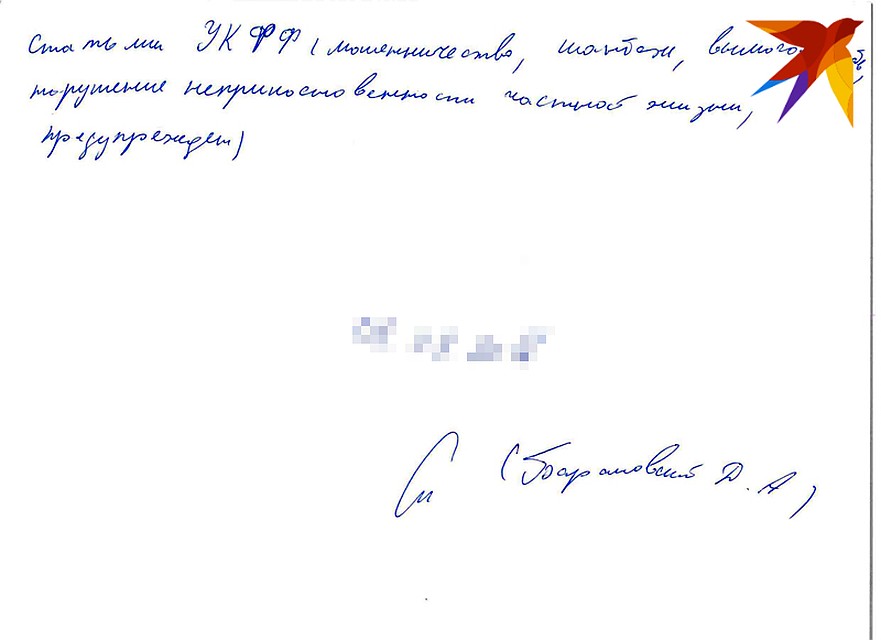 Статьми УК ФФ (мошенничество, шантаж,
нарушение неприкосновенности частной жизни,
предупрежден)
(Барановский Д. А)